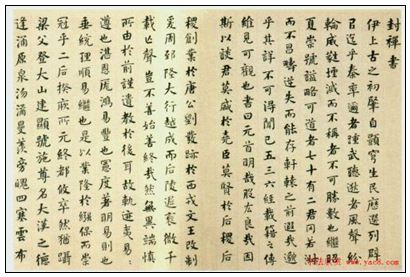 封禪書
伊上古之初肇自顥穹生民歷選列辟
以迄乎秦率邇者踵武聽逖者風聲紛
輪威蕤堙滅而不稱者不可勝數也繼昭
夏崇號謚略可道者七十有二君罔若淑
而不昌疇逆失而能存軒轅之前遐哉邈
乎其詳不可得聞已五三六經載籍之傳
維見可觀也書曰元首明哉股肱良哉因
斯以談君莫盛於堯臣莫賢於后稷后
稷創業於唐公劉發跡於西戎文王改制
爰周郅隆大行越成而后陵遲衰微千
載亡聲豈不善始善終哉然無異端慎
所由於前謹遺教於後耳故軌迹夷易
遵也湛恩厖鴻易豐也憲度著明易則也
垂統理順易繼也是以業隆於繈保而崇
冠乎二后揆厥所元終都攸卒然猶躡
梁父登大山建顯號施尊名大漢之德
逢涌原泉沕潏曼羨旁魄四塞雲布
www.yac8.com